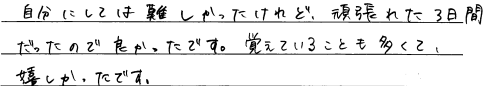 自分にしては難しかったけれど、頑張れた3日間
だったので良かったです。覚えていることも多くて、
嬉しかったです。